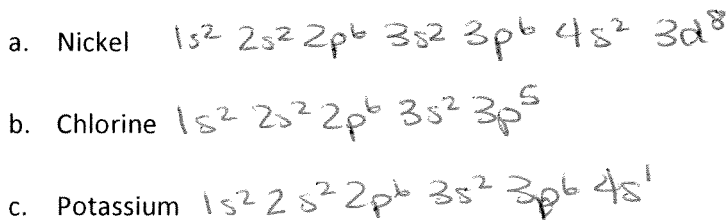 a. Nickel 1s² 2s² 2p⁶ 3s² 3p⁶ 4s² 3d⁸
b. Chlorine 1s² 2s² 2p⁶ 3s² 3p⁵
c. Potassium 1s² 2s² 2p⁶ 3s² 3p⁶ 4s¹